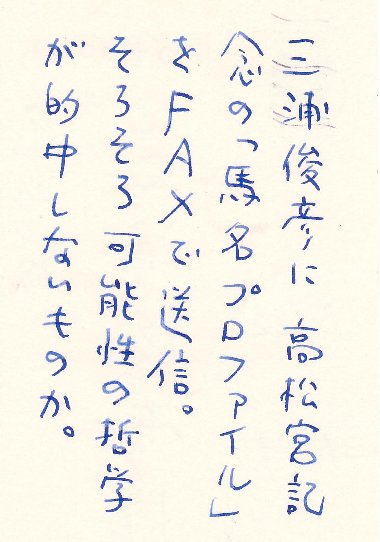 三浦俊彦に 高松宮記
念の「馬名プロファイル」
をFAXで送信。
そろそろ 可能性の哲学
が的中しないものか。